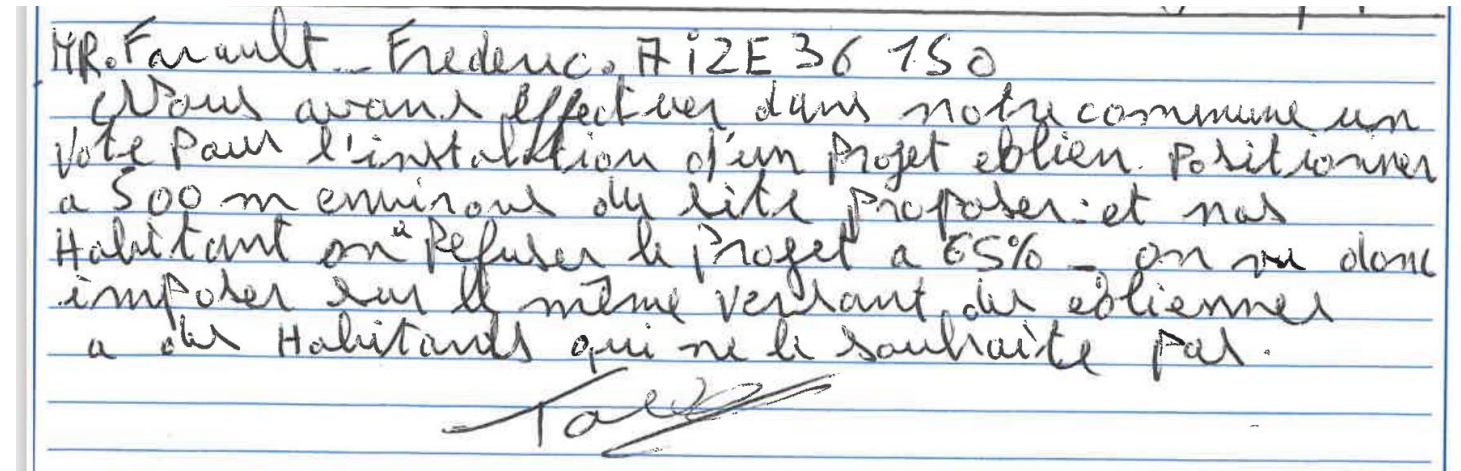 MR. Farault _ Frederic. AiZE 36 150
Nous avons effectuer dans notre commune un
vote pour l'instalation d'un projet eolien. Positionner
a 500 m environs du site proposer. et nos
Habitant on Refuser le projet a 65% _ on va donc
imposer sur le même versant des eoliennes
a des Habitants qui ne le souhaite pas.